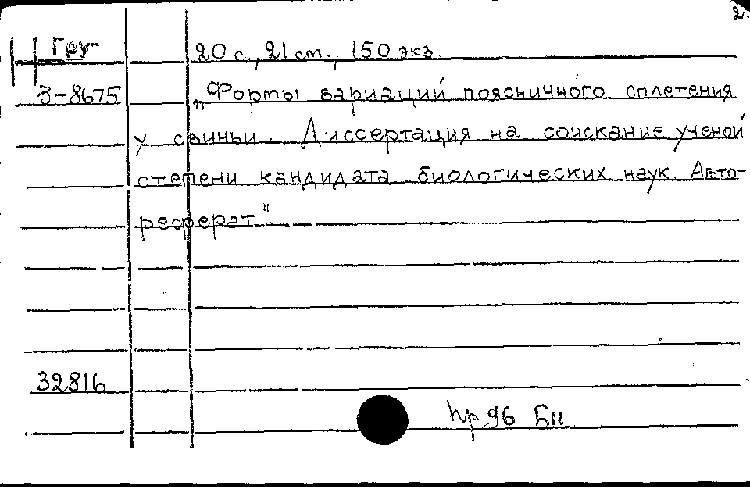 2.
Гру- 20 с, 21 ст, 150 экз.
3-8675 „Формы вариаций поясничного сплетения
у свиньи. Диссертация на соискание ученой
степени кандидата биологических наук. Авто-
реферат"
32816
пр 96 Би